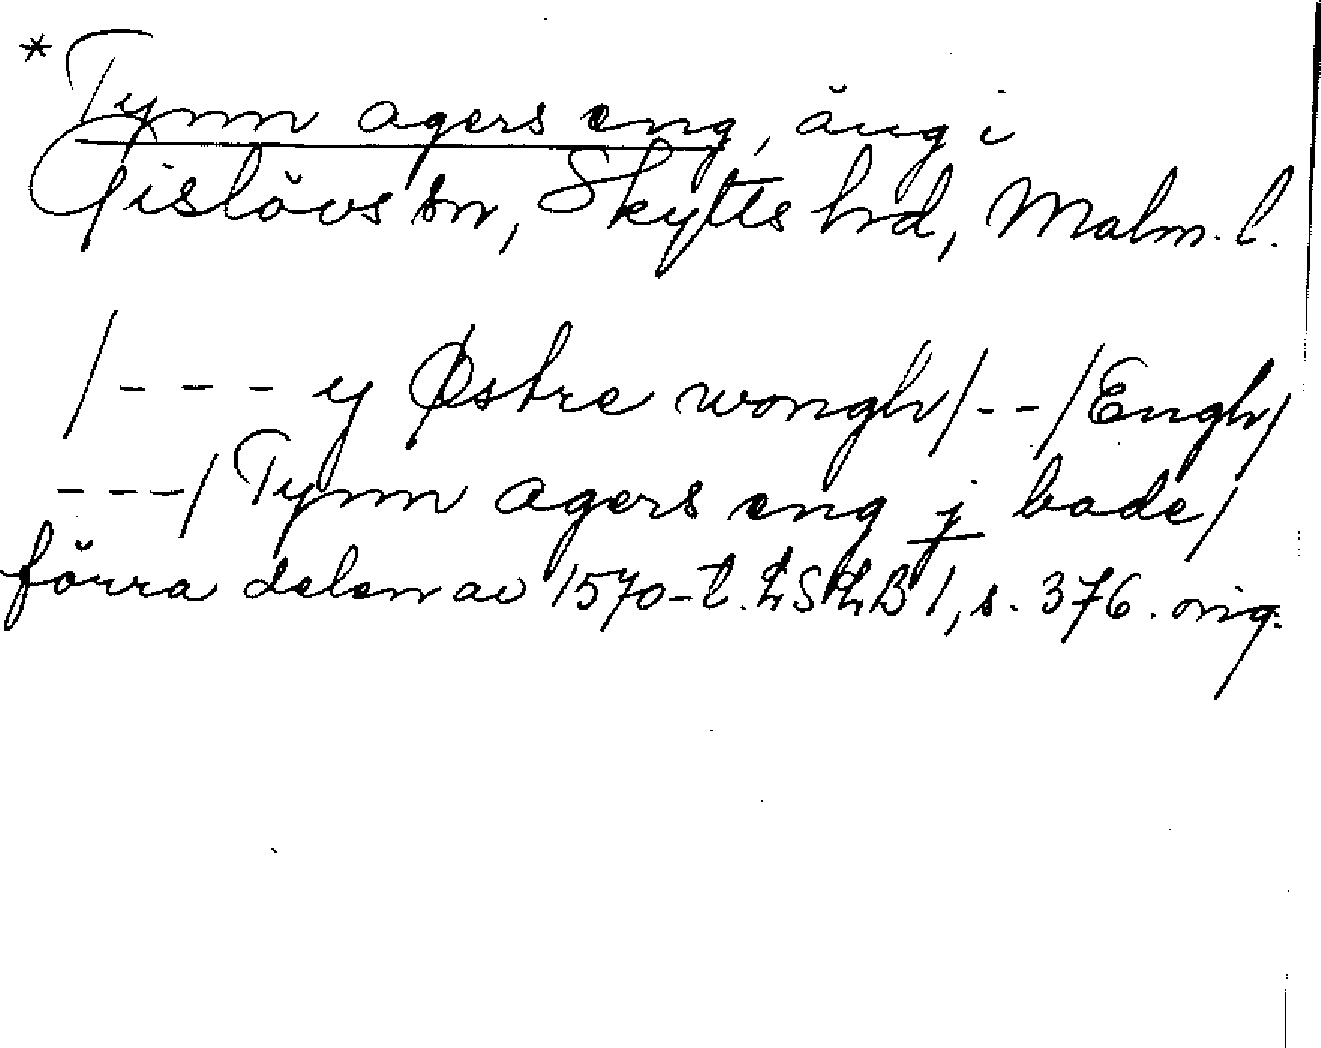 * Tynn agers eng, äng i
Gislövs sn, Skytts hd, Malm. l.
/- - - y Østre wongh/- -/Engh/
- - -/ Tynn agers eng j bade/
förra delen av 1570-t. LSLB 1, s. 376. orig.